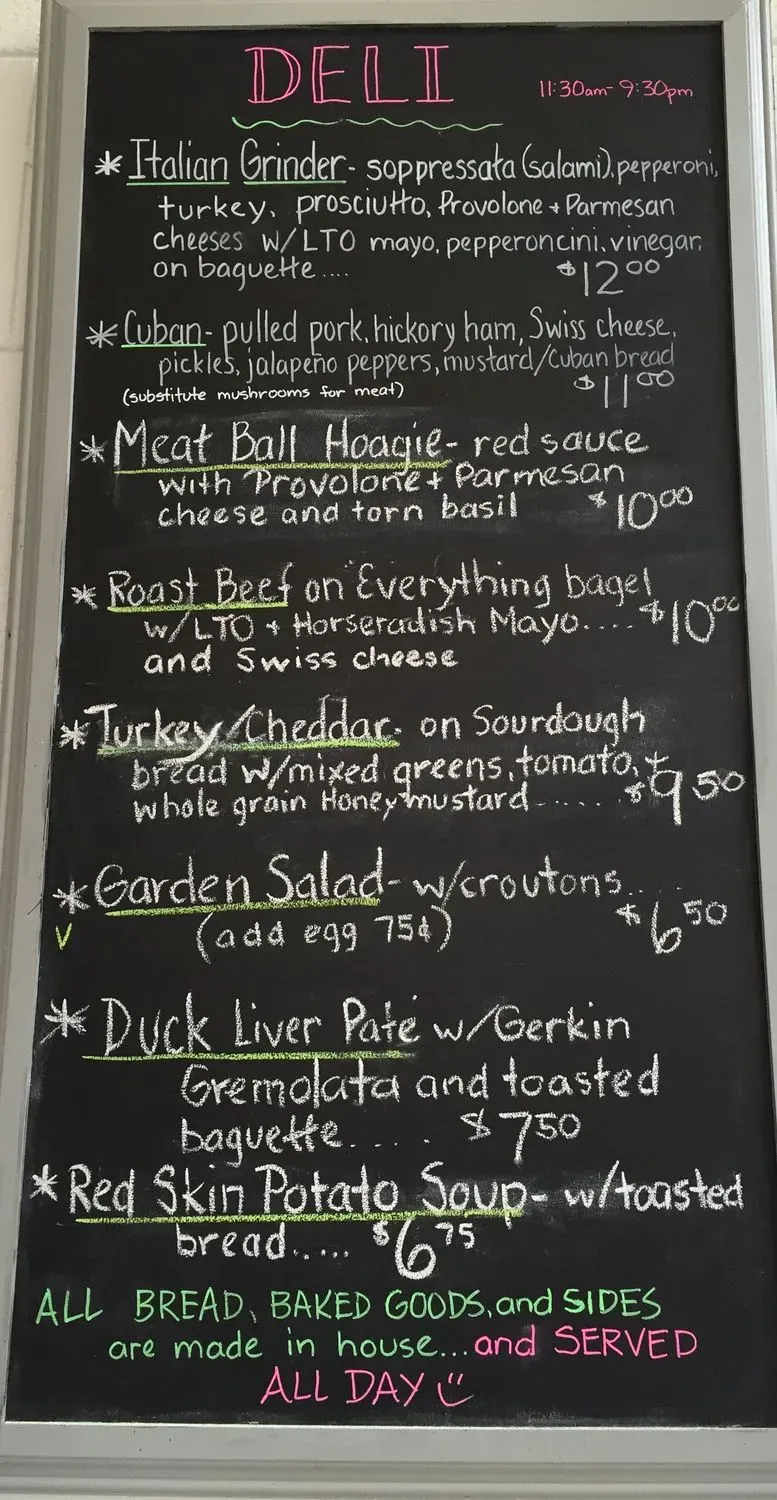 DELI 11:30am-9:30pm
* Italian Grinder- soppressata (salami), pepperoni,
turkey, prosciutto, Provolone + Parmesan
cheeses w/LTO mayo, pepperoncini, vinegar,
on baguette.... $12.00
* Cuban- pulled pork, hickory ham, Swiss cheese,
pickles, jalapeño peppers, mustard/Cuban bread
(substitute mushrooms for meat) $11.00
* Meat Ball Hoagie- red sauce
with Provolone + Parmesan
cheese and torn basil $10.00
* Roast Beef on Everything bagel
w/LTO + Horseradish Mayo.... $10.00
and Swiss cheese
* Turkey/Cheddar- on Sourdough
bread w/mixed greens, tomato, +
whole grain Honey mustard...... $9.50
* Garden Salad- w/croutons.....
V (add egg 75¢) $6.50
* Duck Liver Paté w/Gerkin
Gremolata and toasted
baguette..... $7.50
* Red Skin Potato Soup- w/toasted
bread..... $6.75
ALL BREAD, BAKED GOODS, and SIDES
are made in house...and SERVED
ALL DAY